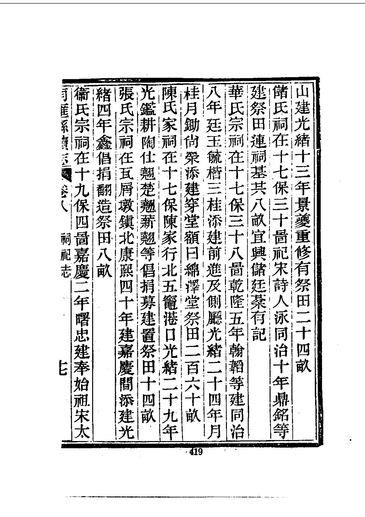 山建光緒十三年景夔重修有祭田二十四畝
儲氏祠在十七保三十啚祀宋詩人泳同治十年鼎銘等
建祭田連祠基共八畝宜興儲廷棻有記
華氏宗祠在十七保三十八啚乾隆五年翰韜等建同治
八年廷玉毓楷三桂添建前進及側廳光緒二十四年月
桂月鋤尙榮添建穿堂額曰綿澤堂祭田二百六十畝
陳氏家祠在十七保陳家行北五竈港口光緒二十九年
光鑑耕陶仕翹楚翹薪翹等倡捐募建置祭田十四畝
張氏宗祠在瓦屑墩鎭北康熙四十年建嘉慶間添建光
緒四年鑫倡捐翻造祭田八畝
衞氏宗祠在十九保四啚嘉慶二年曙忠建奉始祖宋太
卷八 祠祀志 七
419